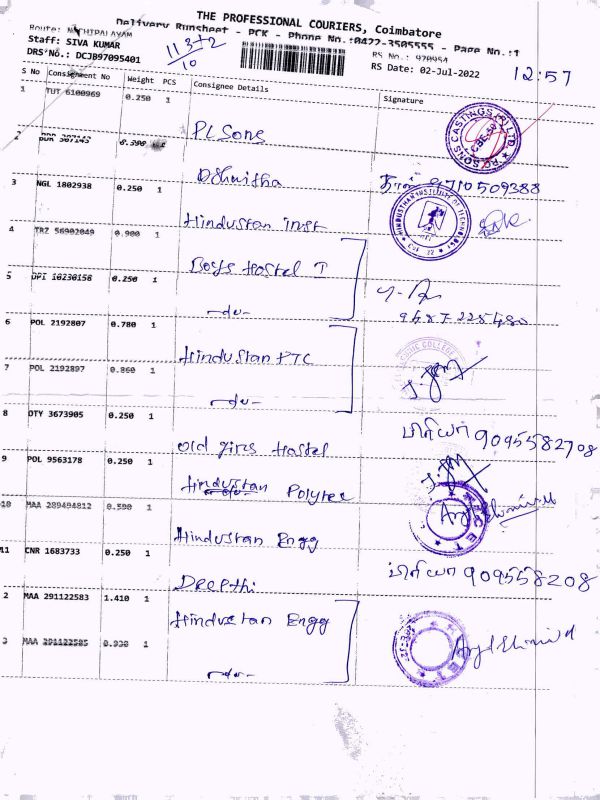 THE PROFESSIONAL COURIERS, Coimbatore
Delivery Runsheet - PCK - Phone No.:0422-3505555 - Page No.:1
Route: NATHIPALAYAM
Staff: SIVA KUMAR
DRS No.: DCJB97095401
113+2
10
RS No.: 970954
RS Date: 02-Jul-2022
12:57
S No Consignment No Weight PCS Consignee Details Signature
1 TUT 6100969 0.250 1
PL Sons
2 307143 0.300
3 NGL 1802938 0.250 1
9710509388
Hindustan Inst
4 TRZ 56902049 0.900 1
Boys Hostel I
5 DPI 10230158 0.250 1
-do-
6 POL 2192807 0.780 1
Hindustan PTC
7 POL 2192897 0.860 1
-do-
8 OTY 3673905 0.250 1
Old girls Hostel
பிரியா 9095582708
9 POL 9563178 0.250 1
Hindustan Polytec
10 MAA 289494812 0.500 1
Hindustan Engg
11 CNR 1683733 0.250 1
Deepthi
பிரியா 909558208
2 MAA 291122583 1.410 1
Hindustan Engg
3 MAA 291122585 0.930 1
-do-